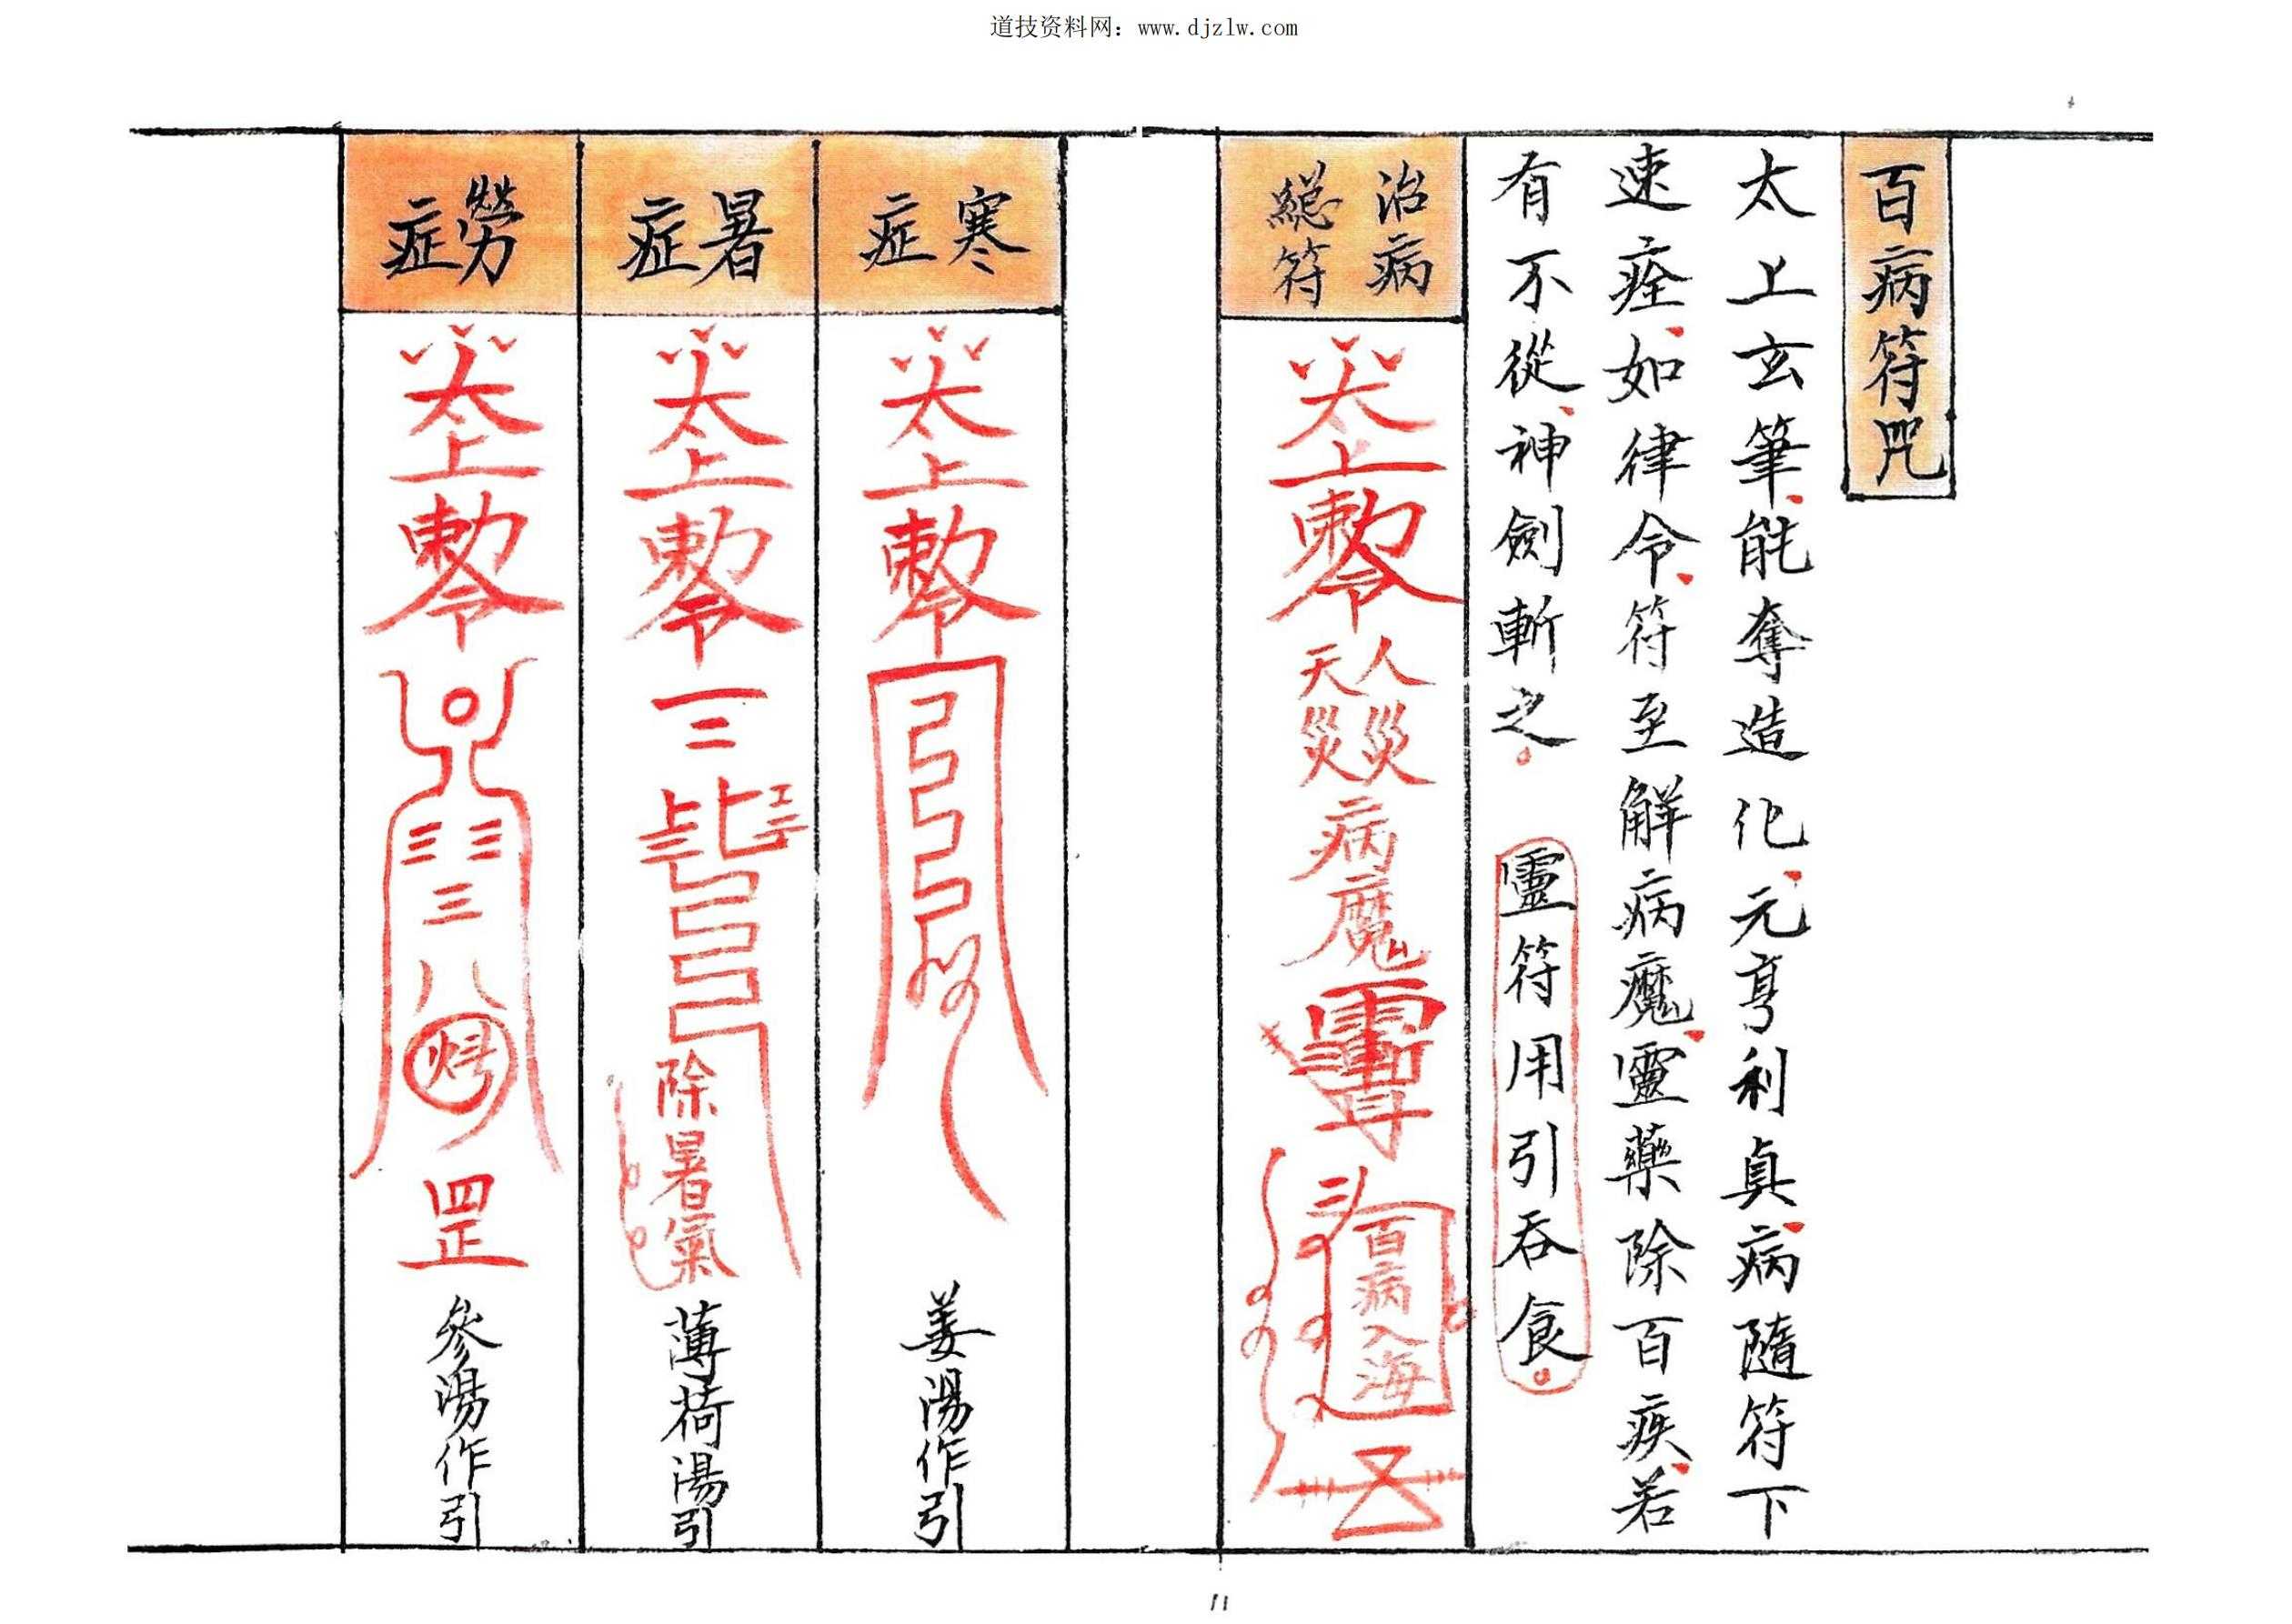 道技资料网：www.djzlw.com
百病符咒
太上玄筆能奪造化元亨利貞病隨符下
速痊如律令符至解病魔靈藥除百疾若
有不從神劍斬之
靈符用引吞食
治病
總符
太上
敕令
人災
天災
病魔
百病入海
寒症
太上
敕令
姜湯作引
暑症
太上
敕令
除暑氣
薄荷湯引
勞症
太上
敕令
罡
參湯作引
11